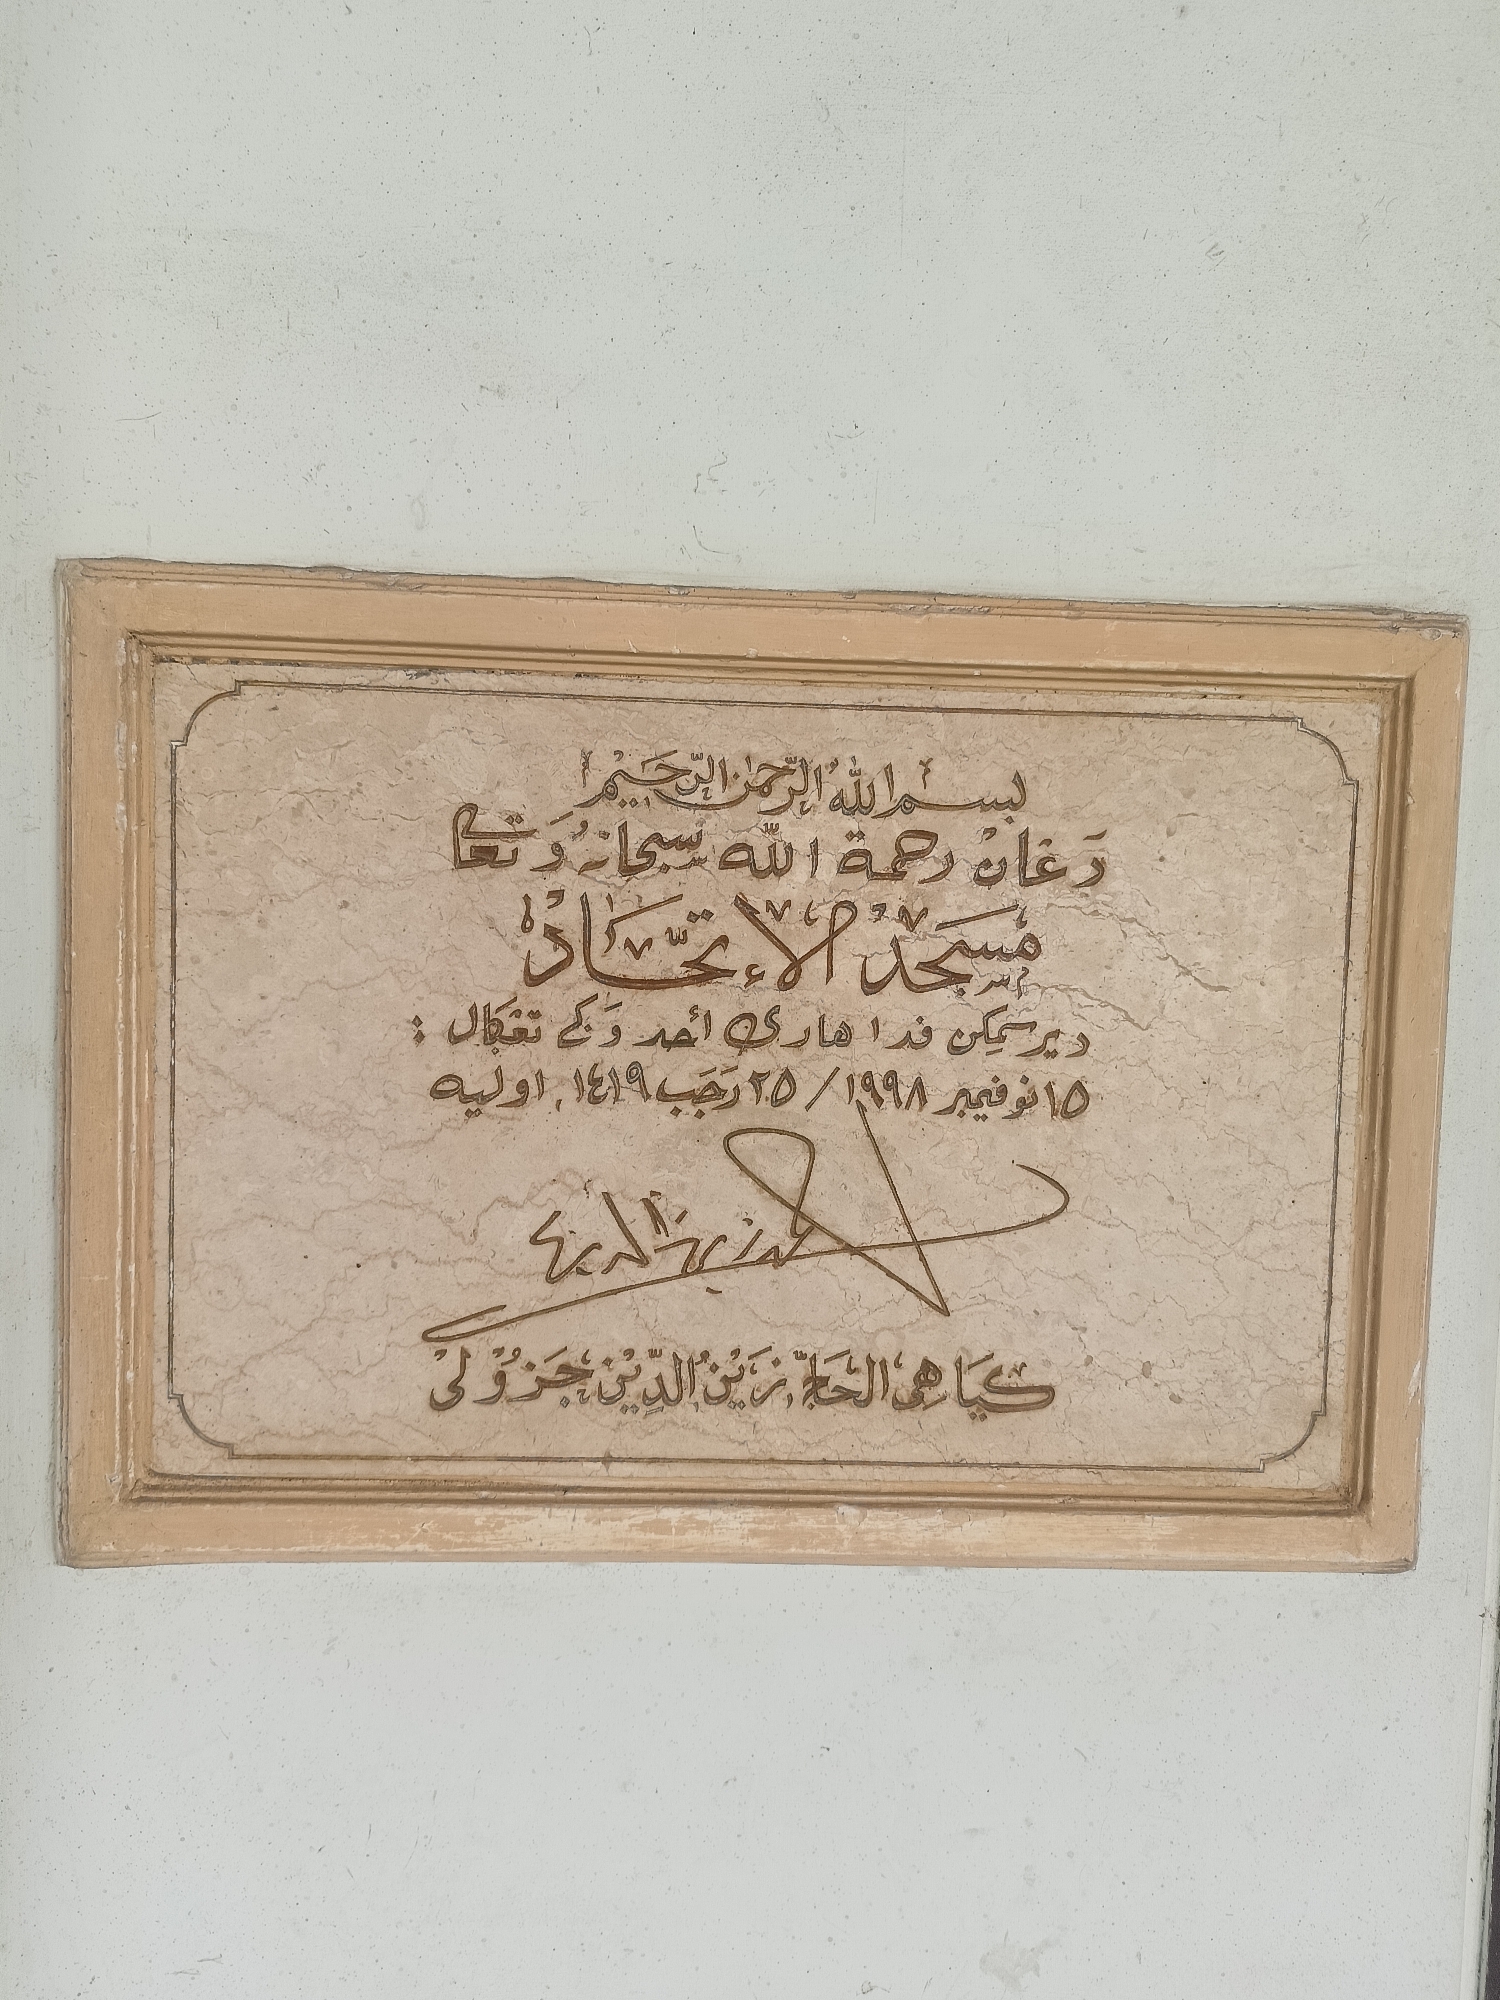 بسم الله الرحمن الرحيم
دَغان رحمة الله سبحانه وَتعالى
مَسْجَدْ الإتحَادْ
ديرسمِكن فدا هاري أحد وَكي تغكال :
١٥ نوفيمبر ١٩٩٨ / ٢٥ رَجَب ١٤١٩، اوليه
كيَاهِي الحَاجّ زَيْنُ الدِّيْن جَزُوْلىْ